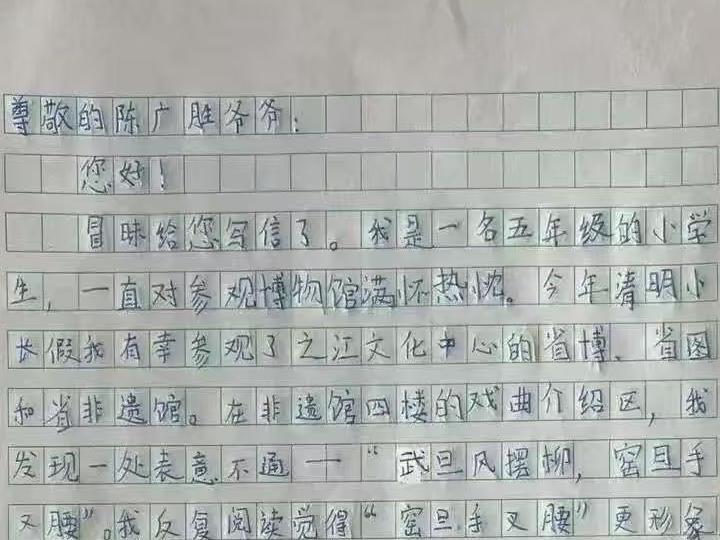 尊敬的陈广胜爷爷：
您好！
冒昧给您写信了。我是一名五年级的小学
生，一直对参观博物馆满怀热忱。今年清明小
长假我有幸参观了之江文化中心的省博、省图
和省非遗馆。在非遗馆四楼的戏曲介绍区，我
发现一处表意不通——“武旦风摆柳，窑旦手
又腰”。我反复阅读觉得“窑旦手叉腰”更形象